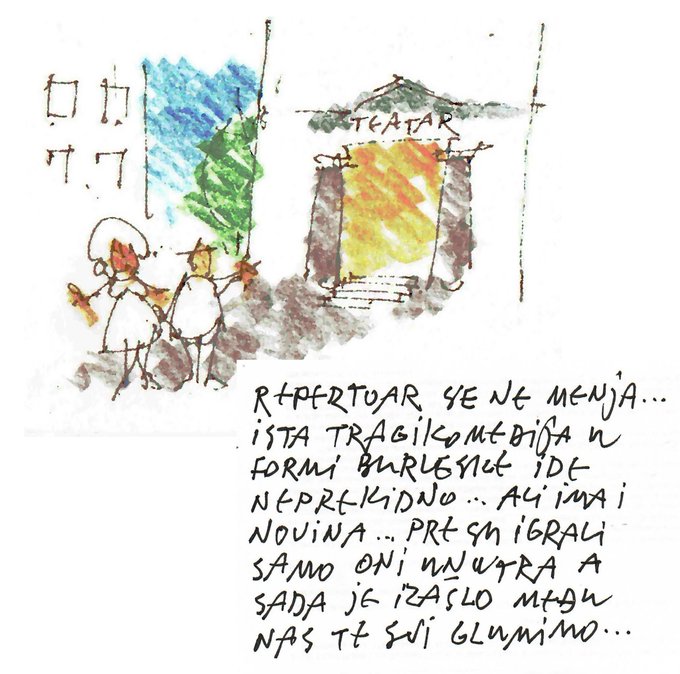 TEATAR
REPERTOAR SE NE MENJA...
ISTA TRAGIKOMEDIJA U
FORMI BURLESKE IDE
NEPREKIDNO... ALI IMA I
NOVINA... PRE SU IGRALI
SAMO ONI UNUTRA A
SADA JE IZAŠLO MEĐU
NAS TE SVI GLUMIMO...